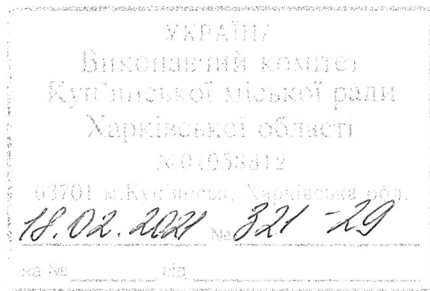 УКРАЇНА
Виконавчий комітет
Куп'янської міської ради
Харківської області
63701 м.Куп'янськ, Харківська обл.
18.02.2021 № 321-29
на № від